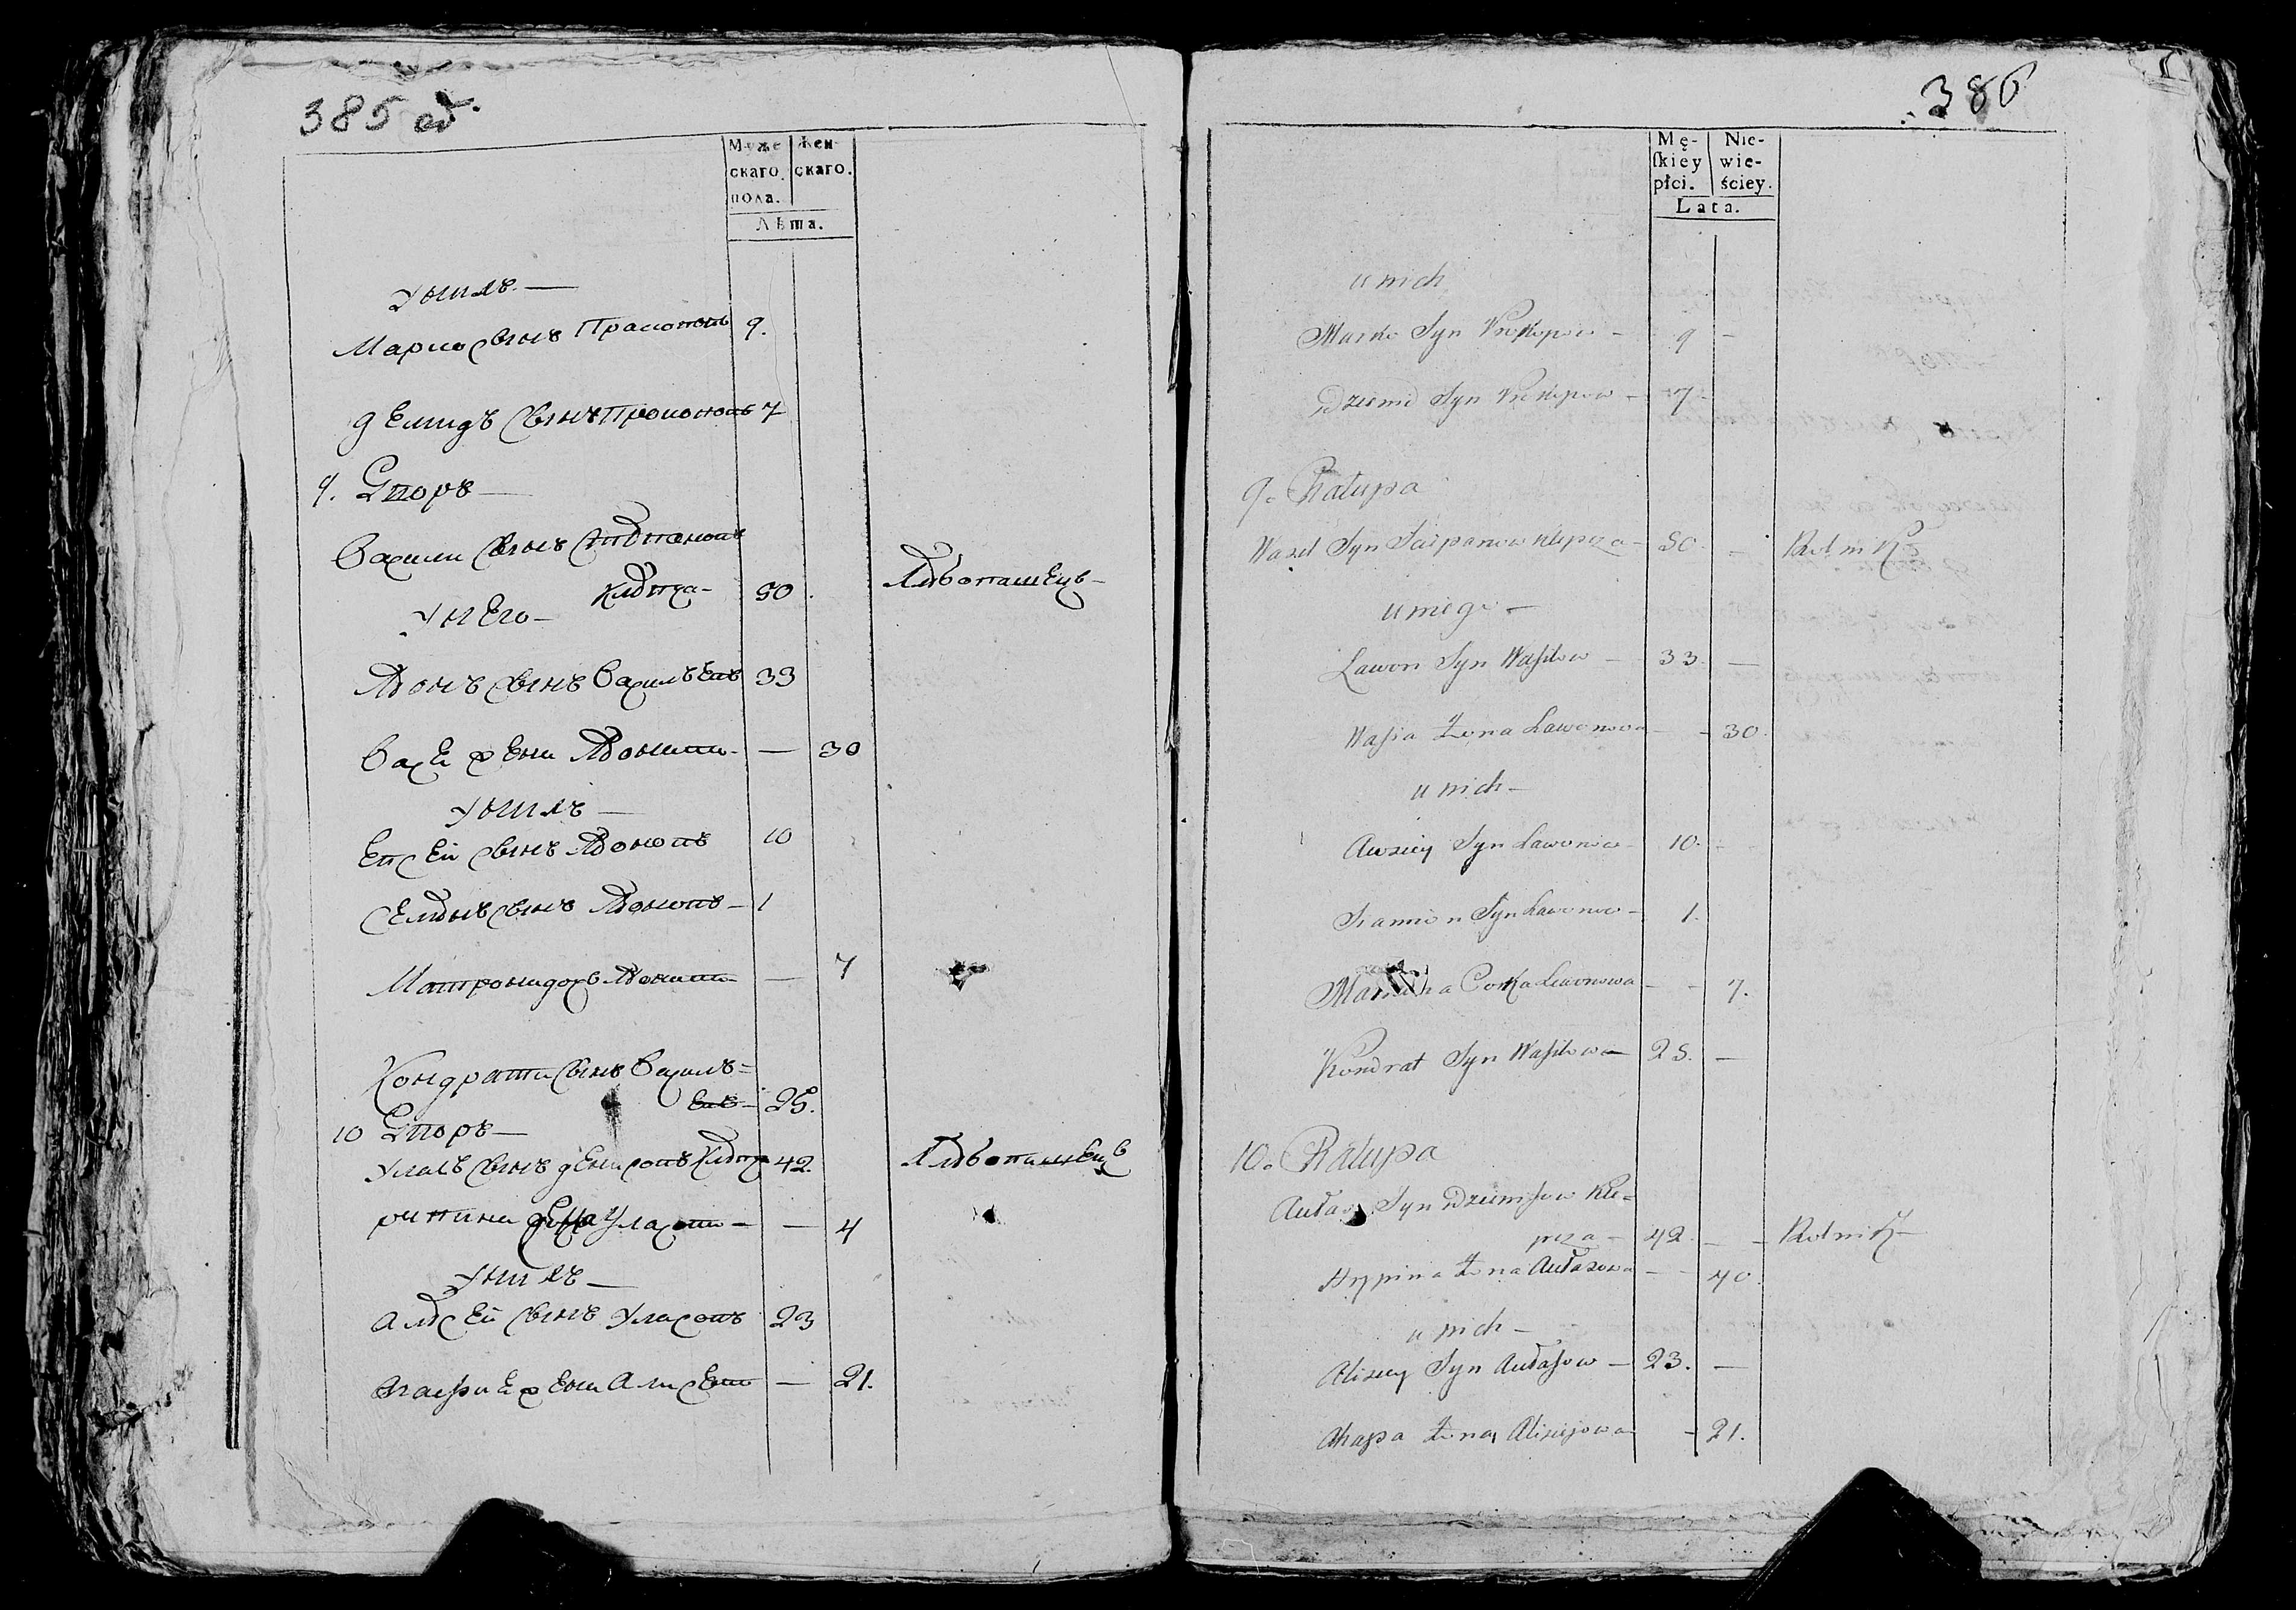 385 об.
Муже
скаго
пола.
Жен
скаго.
Лѣта.
У нихъ —
Марко сынъ Прокоповъ 9.
Демидъ сынъ Прокоповъ 7
9. Дворъ —
Василий сынъ Степановъ
Клепча — 50.
Хлебопашецъ —
У него —
Леонъ сынъ Васильевъ 33
Васа жена Леонова — — 30
У нихъ —
Евсей сынъ Леоновъ 10
Семенъ сынъ Леоновъ — 1
Матрона дочь Леонова — 7
Кондратий сынъ Василь=
евъ — 25.
10 Дворъ —
Уласъ сынъ Денисовъ Клепча 42.
Хлебопашецъ
жена Уласова — — 4
У нихъ —
Алексей сынъ Уласовъ 23
жена Алексеева — 21.
386
Mę-
ſkiey
płci.
Nie-
wie-
ściey.
Lata.
u nich
Marko Syn Prokopow — 9 —
Dziemid Syn Prokopow — 7 —
9. Chałupa
Wasil Syn Sciepanow Klepcza — 50. — Rolnik
u niego —
Lawon Syn Wasilow — 33. —
Wasia Żona Lawonowa — — 30.
u nich —
Awsiey Syn Lawonow — 10. —
Siamion Syn Lawonow — 1.
Corka Lawonowa — — 7.
Kondrat Syn Wasilowa 25. —
10. Chałupa
Aułas Syn Dziemisow Kle=
pcza — 42. — — Rolnik —
Hrypina Żona Aułasowa — — 40
u nich —
Alisiey Syn Aułasow — 23. —
Ahapa Żona Alisiejowa — 21.